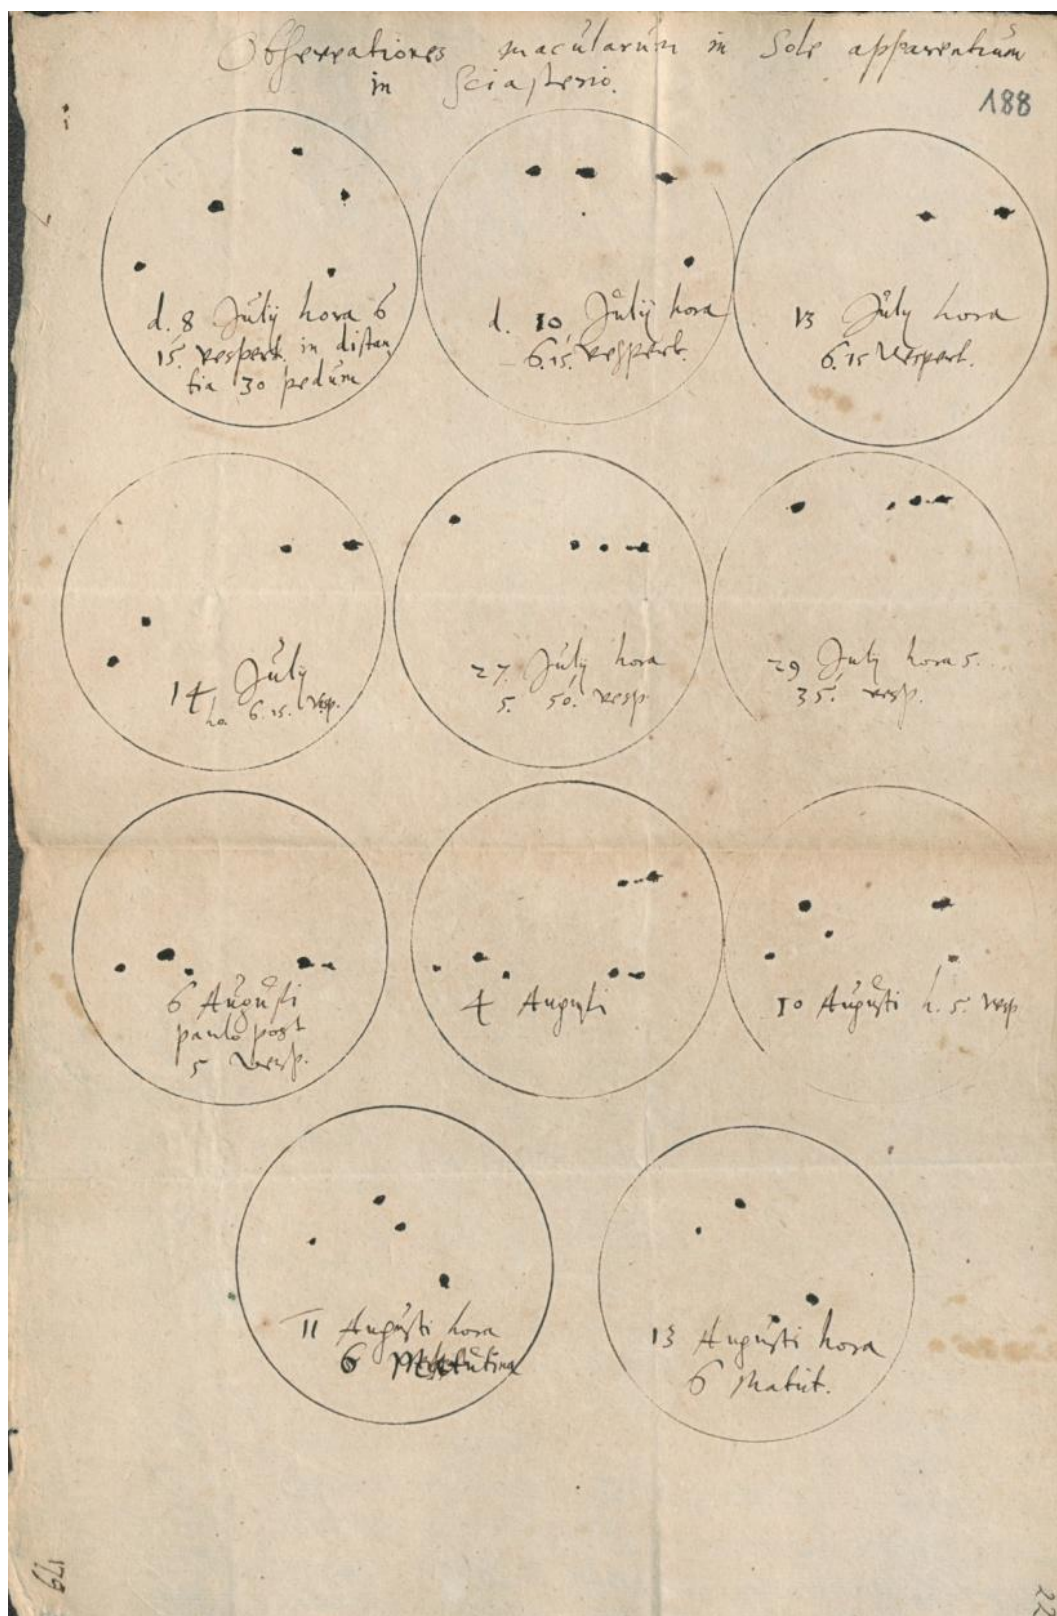 Observationes macularúm in Sole apparentiúm
in Sciasterio.
188
d. 8 Júlij hora 6
15. vespert. in distan,
tia 30 pedúm
d. 10 Júlij hora
6.15. vespert.
13 Júly hora
6.15 Vespert.
14 Júly
ho. 6.15. vesp.
27. Júly hora
5. 50. vesp
29 July hora 5.
35. vesp.
6 Aúgústi
paulo post
5 Vesp.
4 Augusti
10 Aúgústi h. 5. vesp
11 Augústi hora
6 Matútina
13 Augústi hora
6 Matút.
179
22